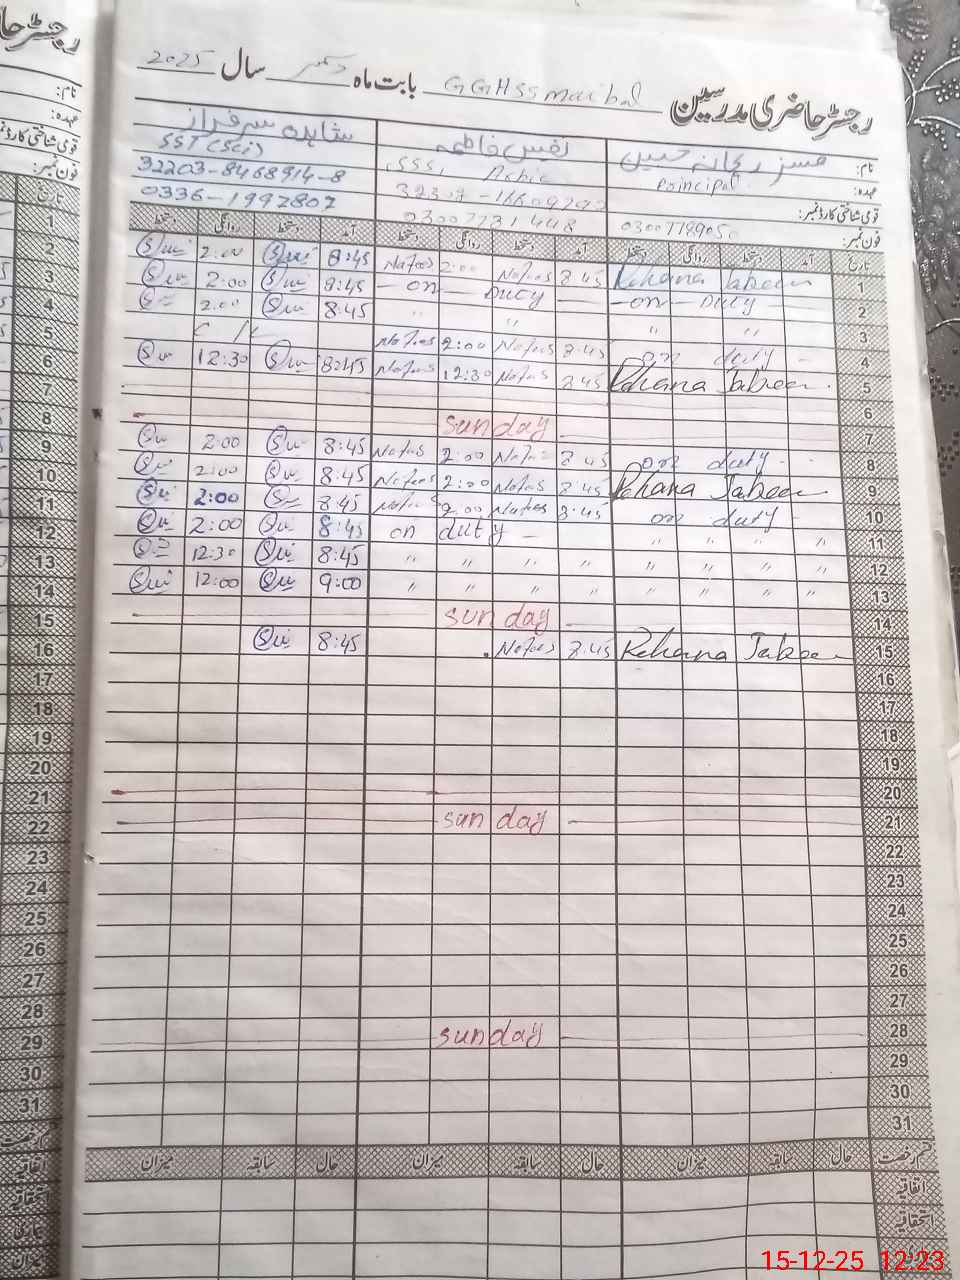 رجسٹر حاضری مدرسین GGHSS Maibal بابت ماہ دسمبر سال 2025
نام: مسز ریحانہ حسین نفیس فاطمہ شاہدہ سرفراز
عہدہ: Principal SSS, Arbic SST (Sci)
قومی شناختی کارڈ نمبر: 32203-8468914-8
فون نمبر: 03007731448 0336-1992807
تاریخ آمد دستخط روانگی دستخط آمد دستخط روانگی دستخط آمد دستخط روانگی دستخط
1 Rehana Jabeen 8:45 Nafees 2:00 Nafees 8:45 2:00
2 —on— Duty— —on— Duty 8:45 2:00
3 " " " " 8:45 2:00
4 on duty — 8:45 Nafees 2:00 Nafees C/L
5 Rehana Jabeen 8:45 Nafees 12:30 Nafees 8:45 12:30
6
7 Sunday
8 on duty 8:45 Nafees 2:00 Nafees 8:45 2:00
9 Rehana Jabeen 8:45 Nafees 2:00 Nafees 8:45 2:00
10 on duty 8:45 Nafees 2:00 Nafees 8:45 2:00
11 " " " " on duty — 8:45 2:00
12 " " " " " " " " 8:45 12:30
13 " " " " " " " " 9:00 12:00
14 Sunday
15 Rehana Jabeen 8:45 Nafees 8:45
16
17
18
19
20
21 Sunday
22
23
24
25
26
27
28 Sunday
29
30
31
قسم رخصت حال سابقہ میزان حال سابقہ میزان حال سابقہ میزان
اتفاقیہ
استحقاقیہ
رجسٹر حا
نام:
عہدہ:
قومی شناختی کارڈ نمبر
فون نمبر:
تاریخ
1
2
3
4
5
6
7
8
9
10
11
12
13
14
15
16
17
18
19
20
21
22
23
24
25
26
27
28
29
30
31
اتفاقیہ
استحقاقیہ
بیماری
میزان
15-12-25 12:23